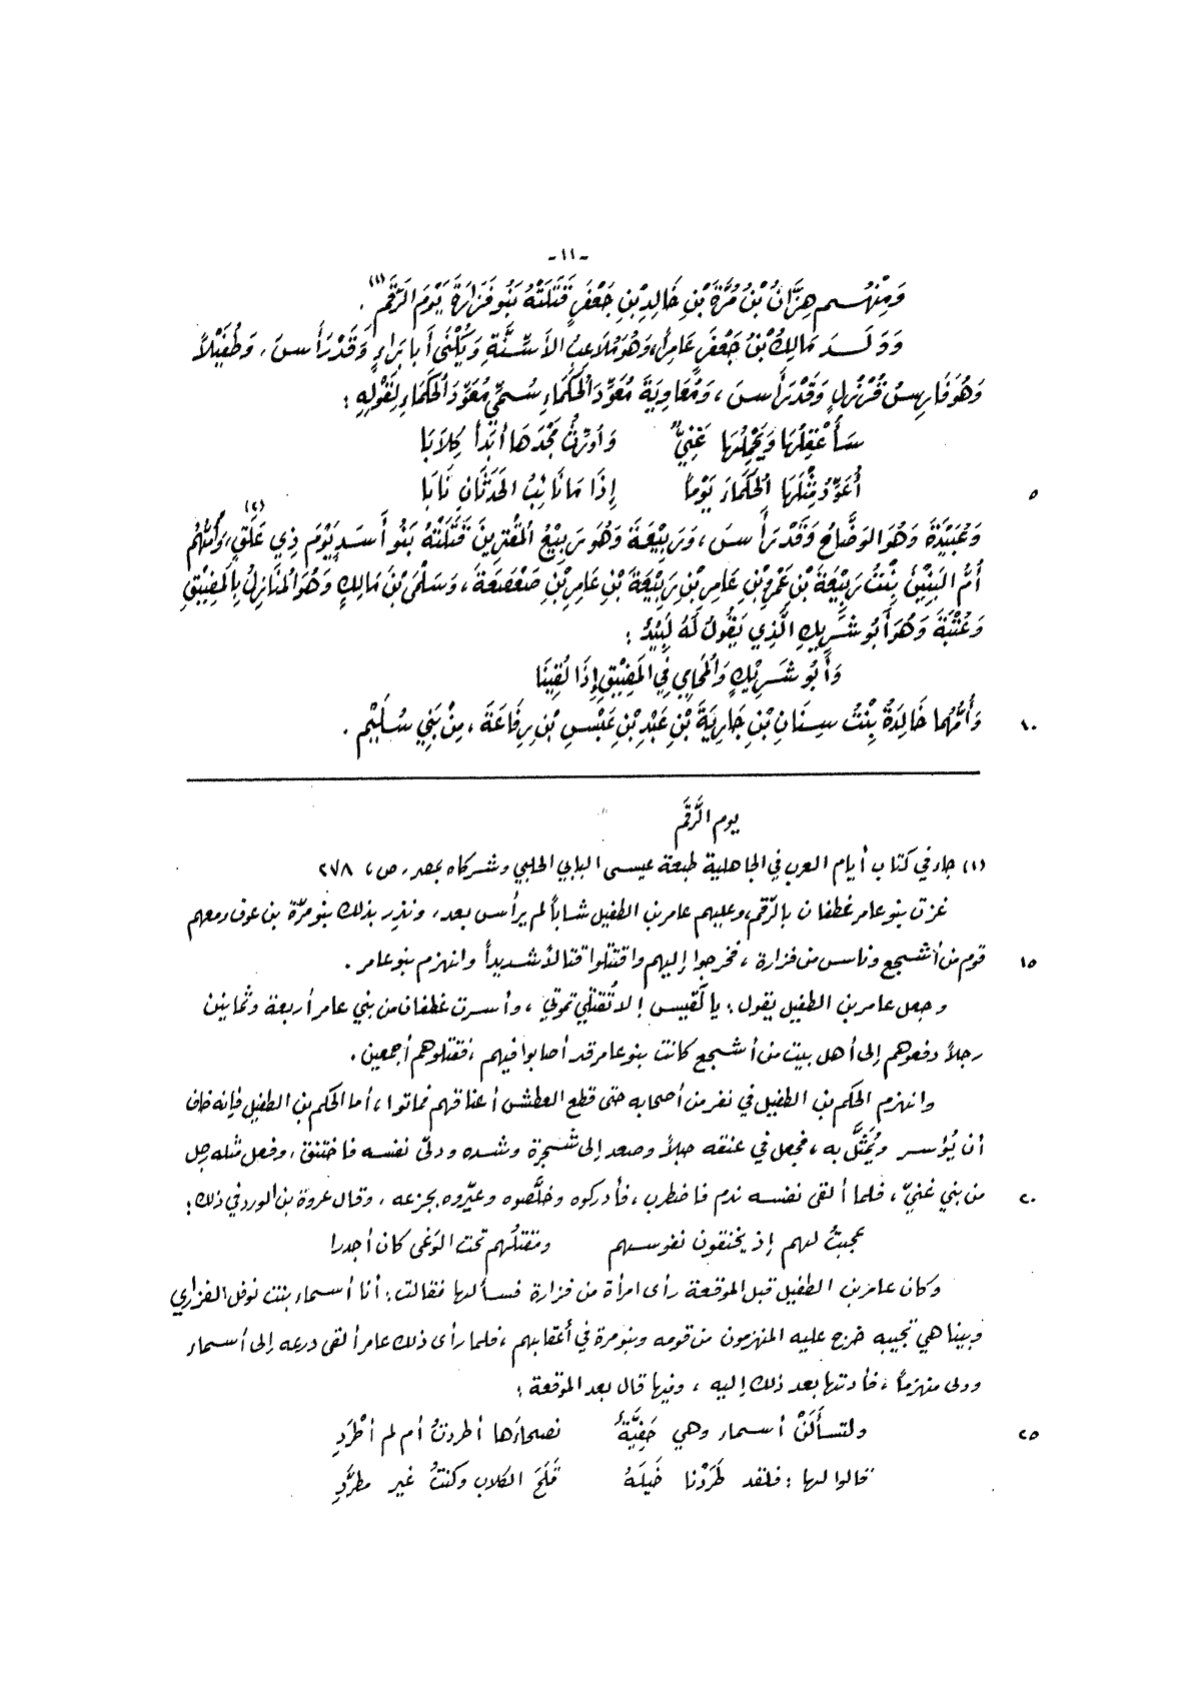 -١١-
وَمِنْهُم هِزَّانُ بْنُ مُرَّةَ بْنِ خَالِدِ بْنِ جَعْفَرٍ قَتَلَتْهُ بَنُو فَزَارَةَ يَوْمَ الرَّقَمِ (١).
وَوَلَــدَ مَالِكُ بْنُ جَعْفَرٍ عَامِرًا، وَهُوَ مُلَاعِبُ الأَسِنَّةِ وَيُكْنَى أَبَا بَرَاءٍ وَقَدْ رَأَسَ، وَطُفَيْلاً
وَهُوَ فَارِسُ قُرْزُلٍ وَقَدْ رَأَسَ، وَمُعَاوِيَةَ مُعَوِّدَ الحُكَمَاءِ سُمِّيَ مُعَوِّدَ الحُكَمَاءِ لِقَوْلِهِ:
سَأَعْقِلُهَا وَيَحْمِلُهَا غَنِيٌّ وَأُورِثُ مَجْدَهَا أَبَداً كِلَابَا
أُعَوِّدُ مِثْلَهَا الحُكَمَاءَ يَوْماً إِذَا مَا نَائِبُ الحَدَثَانِ نَابَا
٥
وَعُبَيْدَةَ وَهُوَ الوَضَّاحُ وَقَدْ رَأَسَ، وَرَبِيْعَةَ وَهُوَ رَبِيْعُ المُقْتِرِينَ قَتَلَتْهُ بَنُو أَسَدٍ يَوْمَ ذِي عَلَقٍ (٢)، وَأُمُّهُم
أُمُّ البَنِيْنَ بِنْتُ رَبِيْعَةَ بْنِ عَمْرِو بْنِ عَامِرِ بْنِ رَبِيْعَةَ بْنِ عَامِرِ بْنِ صَعْصَعَةَ، وَسَلْمَى بْنَ مَالِكٍ وَهُوَ المُنَازِلُ بِالمَضِيْقِ
وَعُتْبَةَ وَهُوَ أَبُو شَرِيكٍ الَّذِي يَقُولُ لَهُ لَبِيْدٌ:
وَأَبُو شَرِيْكٍ وَالمُحَامِي فِي المَضِيْقِ إِذَا لَقِينَا
وَأُمُّهُما خَالِدَةُ بِنْتُ سِنَانِ بْنِ جَارِيَةَ بْنِ عَبْدِ بْنِ عَبْسِ بْنِ رِفَاعَةَ، مِنْ بَنِي سُلَيْمٍ.
١٠
يوم الرَّقَم
(١) جاء في كتاب أيام العرب في الجاهلية طبعة عيسى البابي الحلبي وشركاه بمصر، ص، ٢٧٨
غزت بنو عامر غطفان بالرّقم، وعليهم عامر بن الطفيل شاباً لم يرأس بعد، ونذر بذلك بنو مرّة بن عوف ومعهم
قوم من أشجع وناس من فزارة، فخرجوا إليهم واقتتلوا قتالاً شديداً وانهزم بنو عامر.
١٥
وجعل عامر بن الطفيل يقول: يا لَقيس! لا تُقتلي تموتي، وأسرت غطفان من بني عامر أربعة وثمانين
رجلاً دفعوهم إلى أهل بيت من أشجع كانت بنو عامر قد أصابوا فيهم، فقتلوهم أجمعين.
وانهزم الحكم بن الطفيل في نفر من أصحابه حتى قطع العطش أعناقهم فماتوا، أما الحكم بن الطفيل فإنه خاف
أن يُؤسر ويُمثَّل به، فجعل في عنقه حبلاً وصعد إلى شجرة وشده ودلّى نفسه فاختنق، وفعل مثله رجل
من بني غنيّ، فلما ألقى نفسه ندم فاضطرب، فأدركوه وخلَّصوه وعيّروه بجزعه، وقال عروة بن الورد في ذلك:
٢٠
عجبتُ لهم إذ يخنقون نفوسهم ومقتلُهم تحت الوَغى كان أجدرا
وكان عامر بن الطفيل قبل الموقعة رأى امرأة من فزارة فسألها فقالت: أنا أسماء بنت نوفل الفزاري
وبينا هي تجيبه خرج عليه المنهزمون من قومه وبنو مرة في أعقابهم، فلما رأى ذلك عامر ألقى درعه إلى أسماء
وولى منهزماً، فأدتها بعد ذلك إليه، وفيها قال بعد الموقعة:
ولتسأَلَنْ أسماء وهي حَفِيَّةٌ نصحاءَها أطردتُ أم لم أُطْرَدِ
٢٥
قالوا لها: فلقد طَرَدْنا خَيلَهُ قَلَحَ الكلاب وكنتُ غير مطرَّدِ